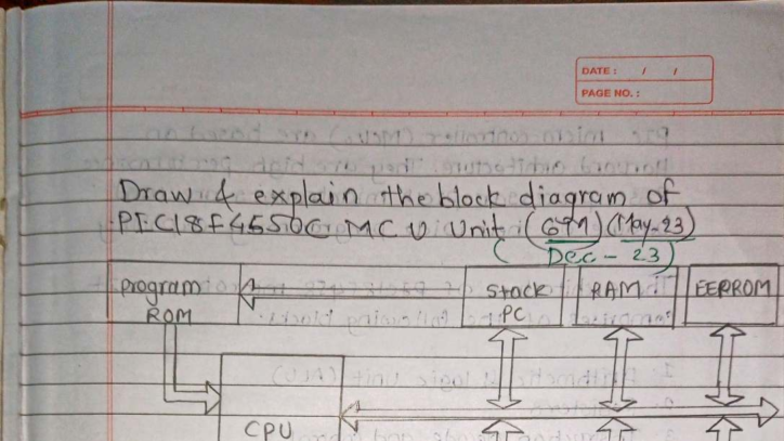 DATE : / /
PAGE NO. :
Draw & explain the block diagram of
PIC18F4550C MCU Unit (6M) (May-23)
( Dec - 23)
program ROM
Stack PC
RAM
EEPROM
CPU